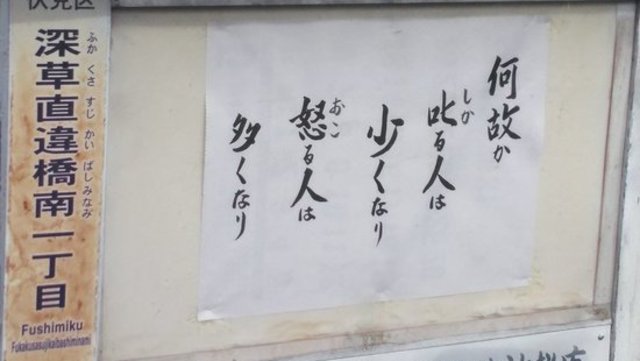 伏見区
深草直違橋南一丁目
ふかくさすじかいばしみなみ
Fushimiku
Fukakusasujikaibashiminami
何故か
叱る人は
しか
少くなり
怒る人は
おこ
多くなり